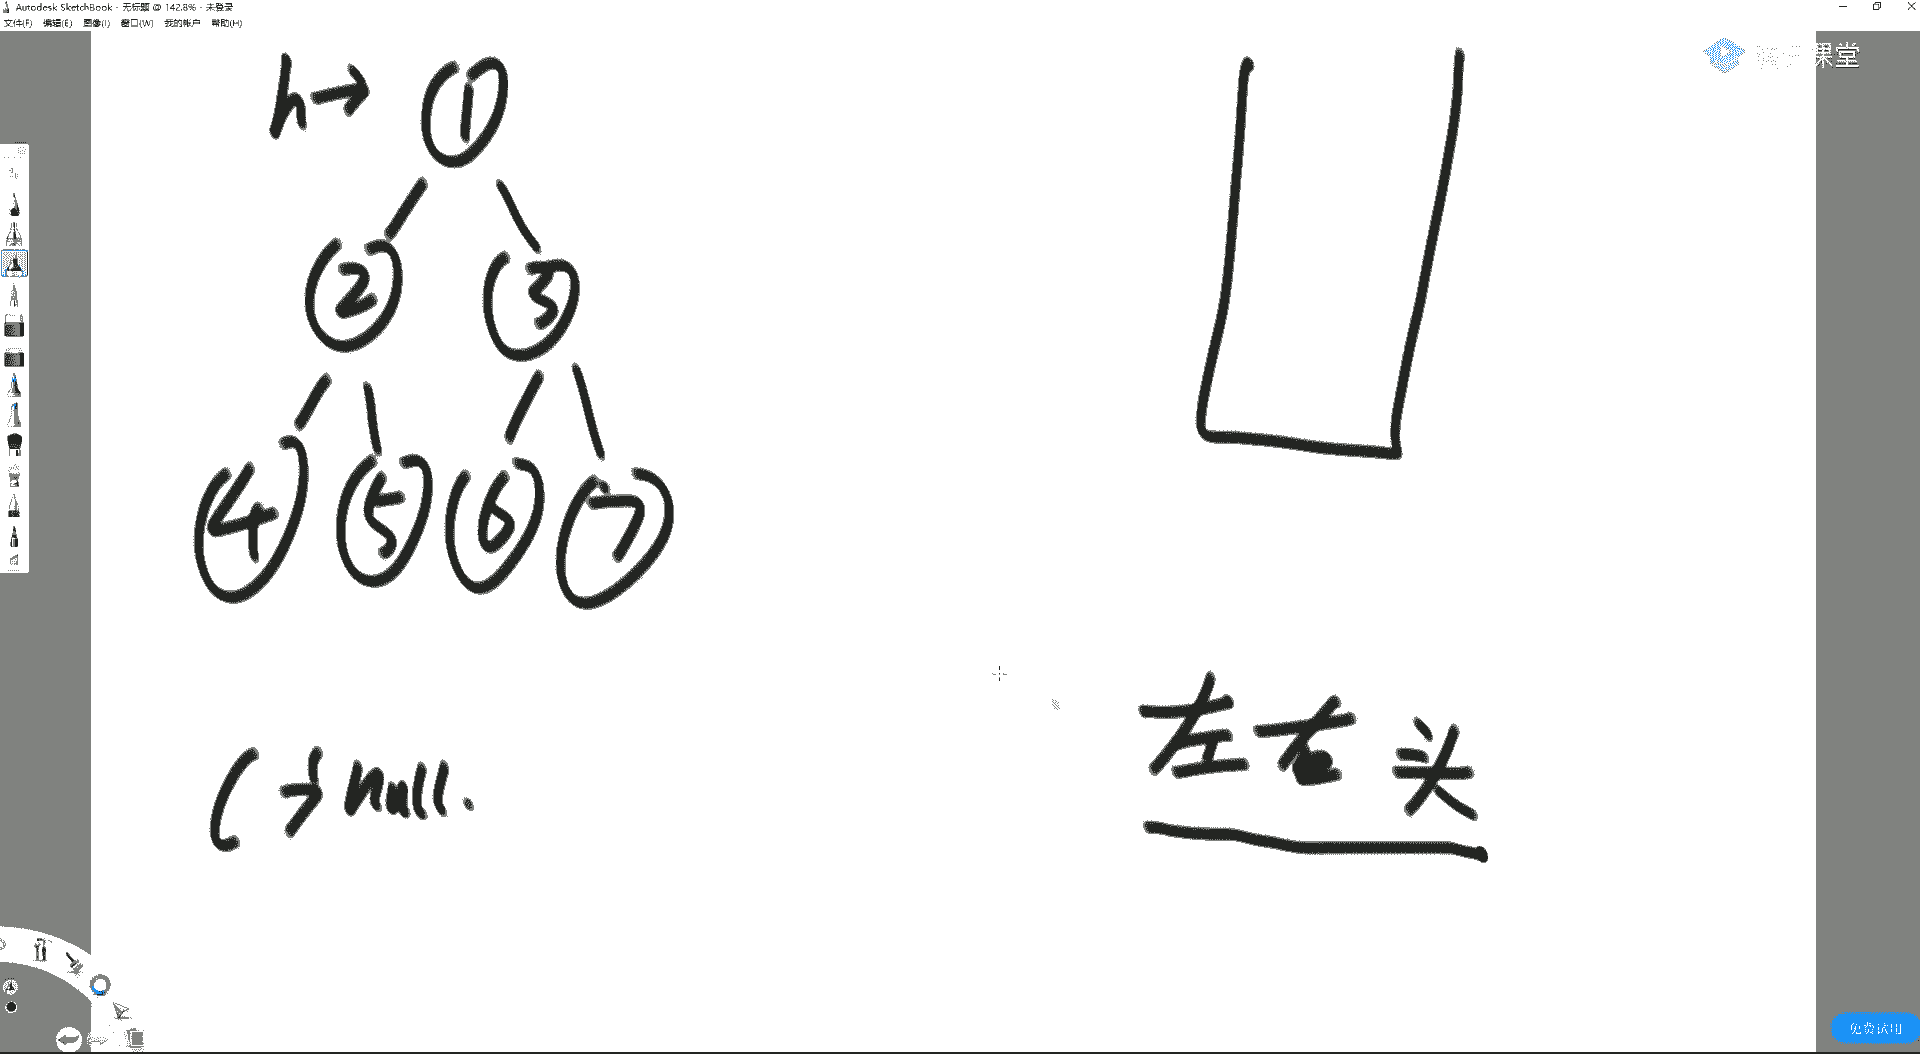 Autodesk SketchBook - 无标题 @ 142.8% - 未登录
文件(F) 编辑(E) 图像(I) 窗口(W) 我的帐户 帮助(H)
课堂
h→
1
2 3
4 5 6 7
左右头
c → null.
免费试用